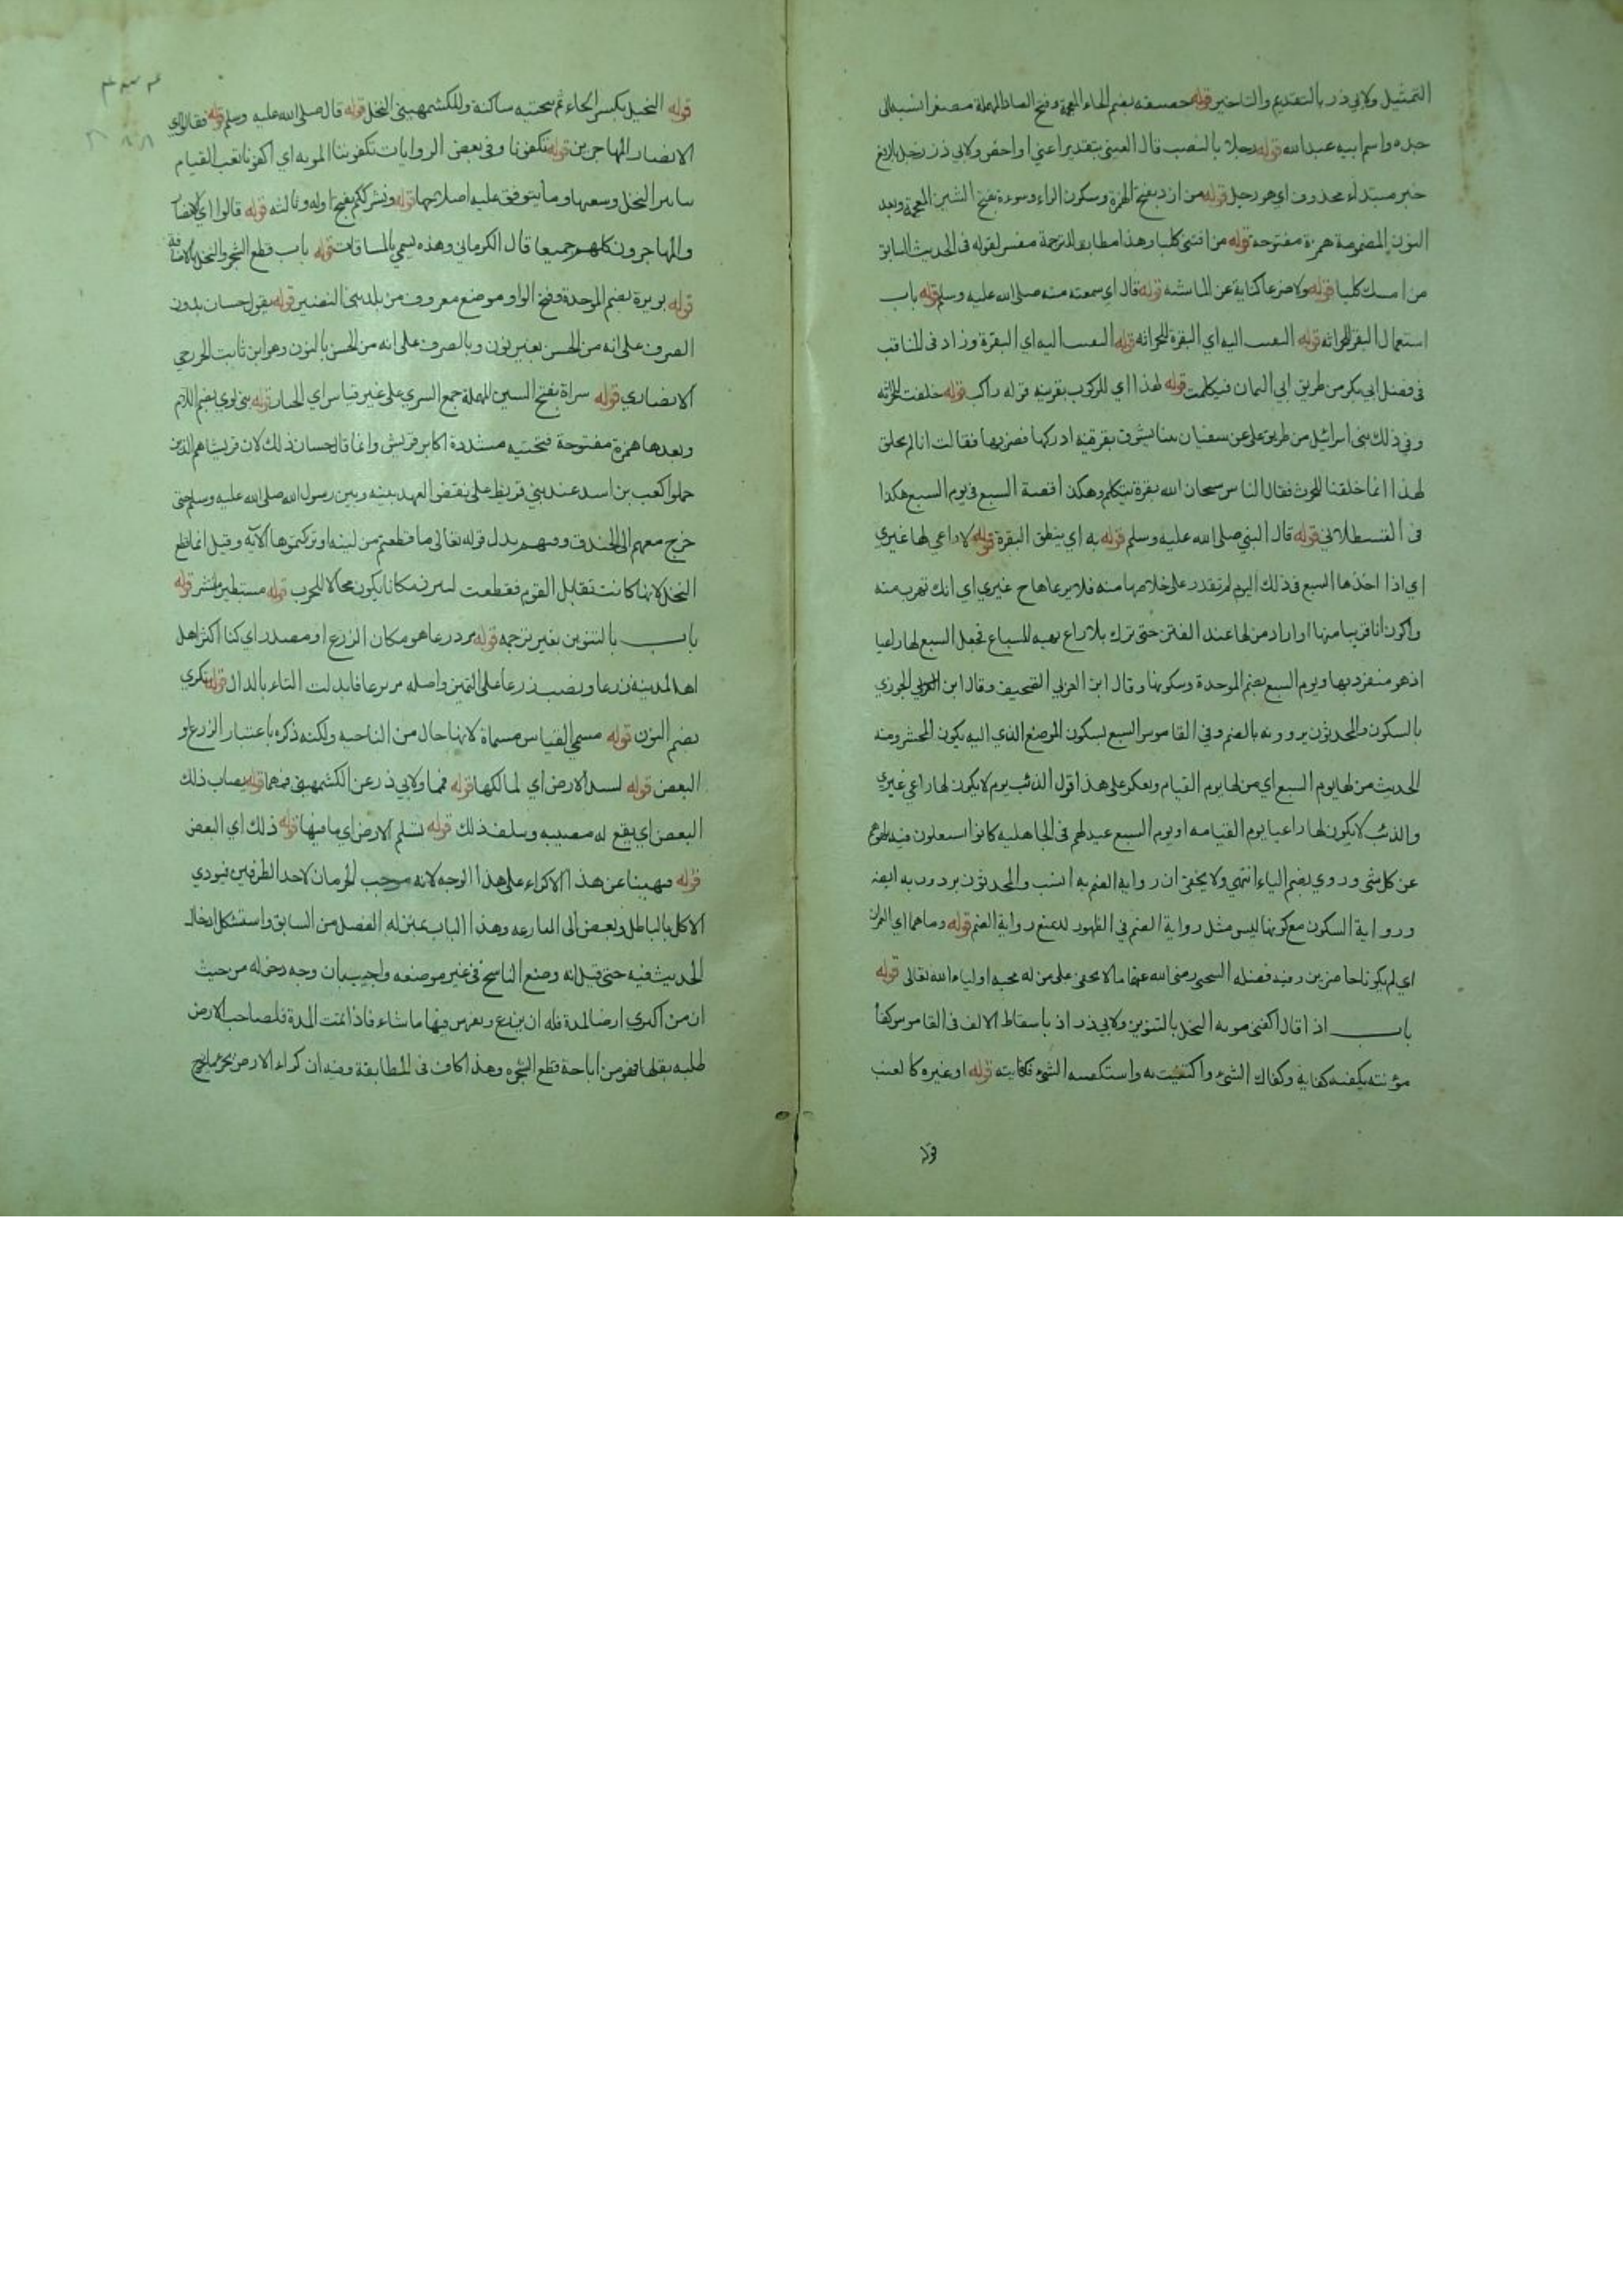 التمثيل ولابي ذر بالتقديم والتاخير قوله خصيفه بضم الخاء المعجمة وفتح الصاد المهملة مصغرا نسبه الى
جده واسم ابيه عبد الله قوله رجلا بالنصب قال العيني بتقدير اعني او اخص ولابي ذر رجل بالرفع
خبر مبتداء محذوف اي هو رجل قوله من ازد بفتح الهمزة وسكون الراء وسوءة بفتح الشين المعجمة وبعد
النون المضمومة همزة مفتوحة قوله من اقتنى كلبا وهذا مطابق للترجمة مفسر لقوله في الحديث السابق
من امسك كلبا قوله ولا ضرعا كناية عن الماشيه قوله قال اي سمعته منه صلى الله عليه وسلم قوله باب
استعمال البقر للحراثه قوله التفت اليه اي البقرة للحراثه قوله التفت اليه اي البقرة وزاد في المناقب
في فضل ابي بكر من طريق ابي اليمان فتكلمت قوله لهذا اي للركوب بقرينه قوله راكب قوله خلقت للحراثه
وفي ذلك بنى اسرائيل من طريق علي عن سفيان بينا يسوق بقرة اذ ركبها فضربها فقالت انا لم نخلق
لهذا انما خلقنا للحرث فقال الناس سبحان الله بقرة تتكلم وهكذا قصة السبع في يوم السبع هكذا
في القسطلاني قوله قال النبي صلى الله عليه وسلم قوله به اي بنطق البقرة قوله لا راعي لها غيري
اي اذا اخذها السبع في ذلك اليوم لم تقدر على خلاصها منه فلا يرعاها ح غيري اي انك تهرب منه
واكون انا قريبا منها او اراد من لها عند الفتن حتى تترك بلا راع نهبه للسباع تجعل السبع لها راعيا
اذ هو منفرد بها ويوم السبع بضم الموحدة وسكونها وقال ابن العربي الصحيف وقال ابن الجوزي
بالسكون والمحدثون يروونه بالضم وفي القاموس السبع بسكون الموضع الذي اليه يكون المحشر ومنه
الحديث من لها يوم السبع اي من لها يوم القيام ويعكر على هذا قول الذئب يوم لا يكون لها راعي غيري
والذئب لا يكون لها راعيا يوم القيامه او يوم السبع عيد لهم في الجاهليه كانوا
عن كل شى وروي بضم الياء انتهى ولا يخفى ان رواية الضم به انسب والمحدثون يردون به ايضا
ورواية السكون مع كونها ليس مثل رواية الضم في الظهور لا يمنع رواية الضم قوله وما هما اي العمران
اي لم يكونا حاضرين وفيه فضله الشيخين رضى الله عنهما ما لا يخفى على من له محبه اولياء الله تعالى قوله
باب اذا قال اكفني مونه النخل بالتنوين ولابي ذر اذ باسقاط الالف في القاموس كفا
مؤنته يكفيه كفاية وكفاك الشئ واكتفيت به واستكفيه الشئ فكفايته قوله او غيره كالعنب
قوله
قوله النخيل بكسر الخاء ثم تحتيه ساكنة وللكشمهيني النخل قوله قال صلى الله عليه وسلم قوله فقالوا اي
الانصار للمهاجرين قوله تكفونا وفي بعض الروايات تكفوننا المونه اي اكفونا تعب القيام
سائر النخل وسعيها وما يتوقف عليه اصلاحها قوله ونشرككم بفتح اوله وثالثه قوله قالوا اي الانصار
والمهاجرون كلهم جميعا قال الكرماني وهذه يسمى بالمساقات قوله باب قطع الشجر والنخل بالاضافة
قوله بويرة بضم الموحدة وفتح الواو موضع معروف من بلد بني النضير قوله يقول حسان بدون
الصرف على انه من الحس بغير نون وبالصرف على انه من الحسن بالنون وهو ابن ثابت الخزرجي
الانصاري قوله سراة بفتح السين المهملة جمع السري على غير قياس اي الخيار قوله بني لوي بضم اللام
وبعدها همزة مفتوحة فتحتيه مشددة اكابر قريش وانما قال حسان ذلك لان قريشا هم الذين
حملوا كعب بن اسد عند بني قريظ على نقض العهد بينه وبين رسول الله صلى الله عليه وسلم حتى
خرج معهم الى الخندق وفيهم نزل قوله تعالى ما قطعتم من لينه او تركتموها الآية وقيل انما قطع
النخل لانها كانت تقابل القوم فقطعت ليبرز مكانا يكون مجالا للحرب قوله مستطير منتشر قوله
باب بالتنوين بغير ترجمه قوله مزدرعا هو مكان الزرع او مصدر اي كنا اكثر اهل
اهل المدينه زرعا ونصب زرعا على التميز واصله مزترعا فابدلت التاء بالدال قوله نكري
بضم النون قوله مسمى القياس مسماة لانها حال من الناحيه ولكنه ذكره باعتبار الزرع او
البعض قوله لسيد الارض اي لمالكها قوله فمما ولابي ذر عن الكشمهيني فمهما قوله يصاب ذلك
البعض اي يقع له مصيبه ويتلف ذلك قوله تسلم الارض اي ما فيها قوله ذلك اي البعض
قوله فنهينا عن هذا الاكراء على هذا الوجه لانه موجب لحرمان لاحد الطرفين فيودي
الاكل بالباطل وبعض الى المنازعه وهذا الباب بمنزله الفصل من السابق واستشكل ادخال
الحديث فيه حتى قيل انه وضع الناسخ في غير موضعه واجيب بان وجه دخوله من حيث
ان من اكتري ارضا لمدة فله ان يزرع ويغرس فيها ما شاء فاذا تمت المدة فلصاحب الارض
طلبه بقلعها فهو من اباحة قطع الشجره وهذا كاف في المطابقة وفيه ان كراء الارض بجزء مما يخرج